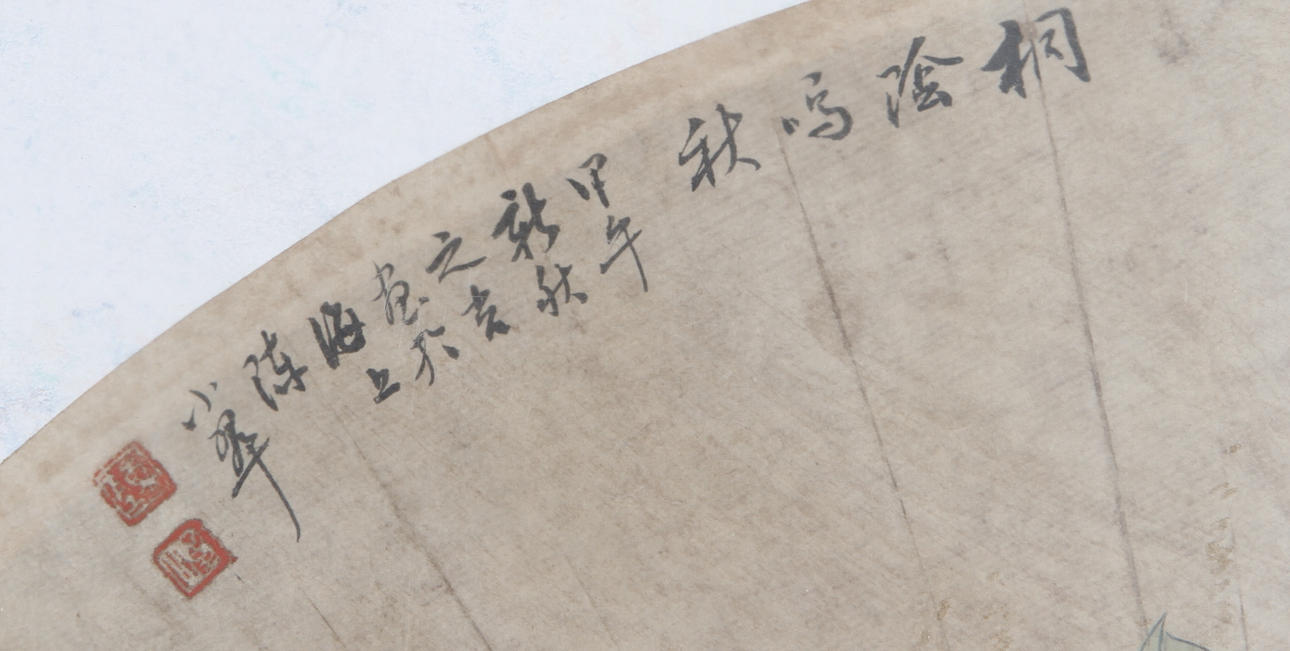 桐陰鳴秋
甲午
新秋
之吉
畫於
海上
陳
小翠